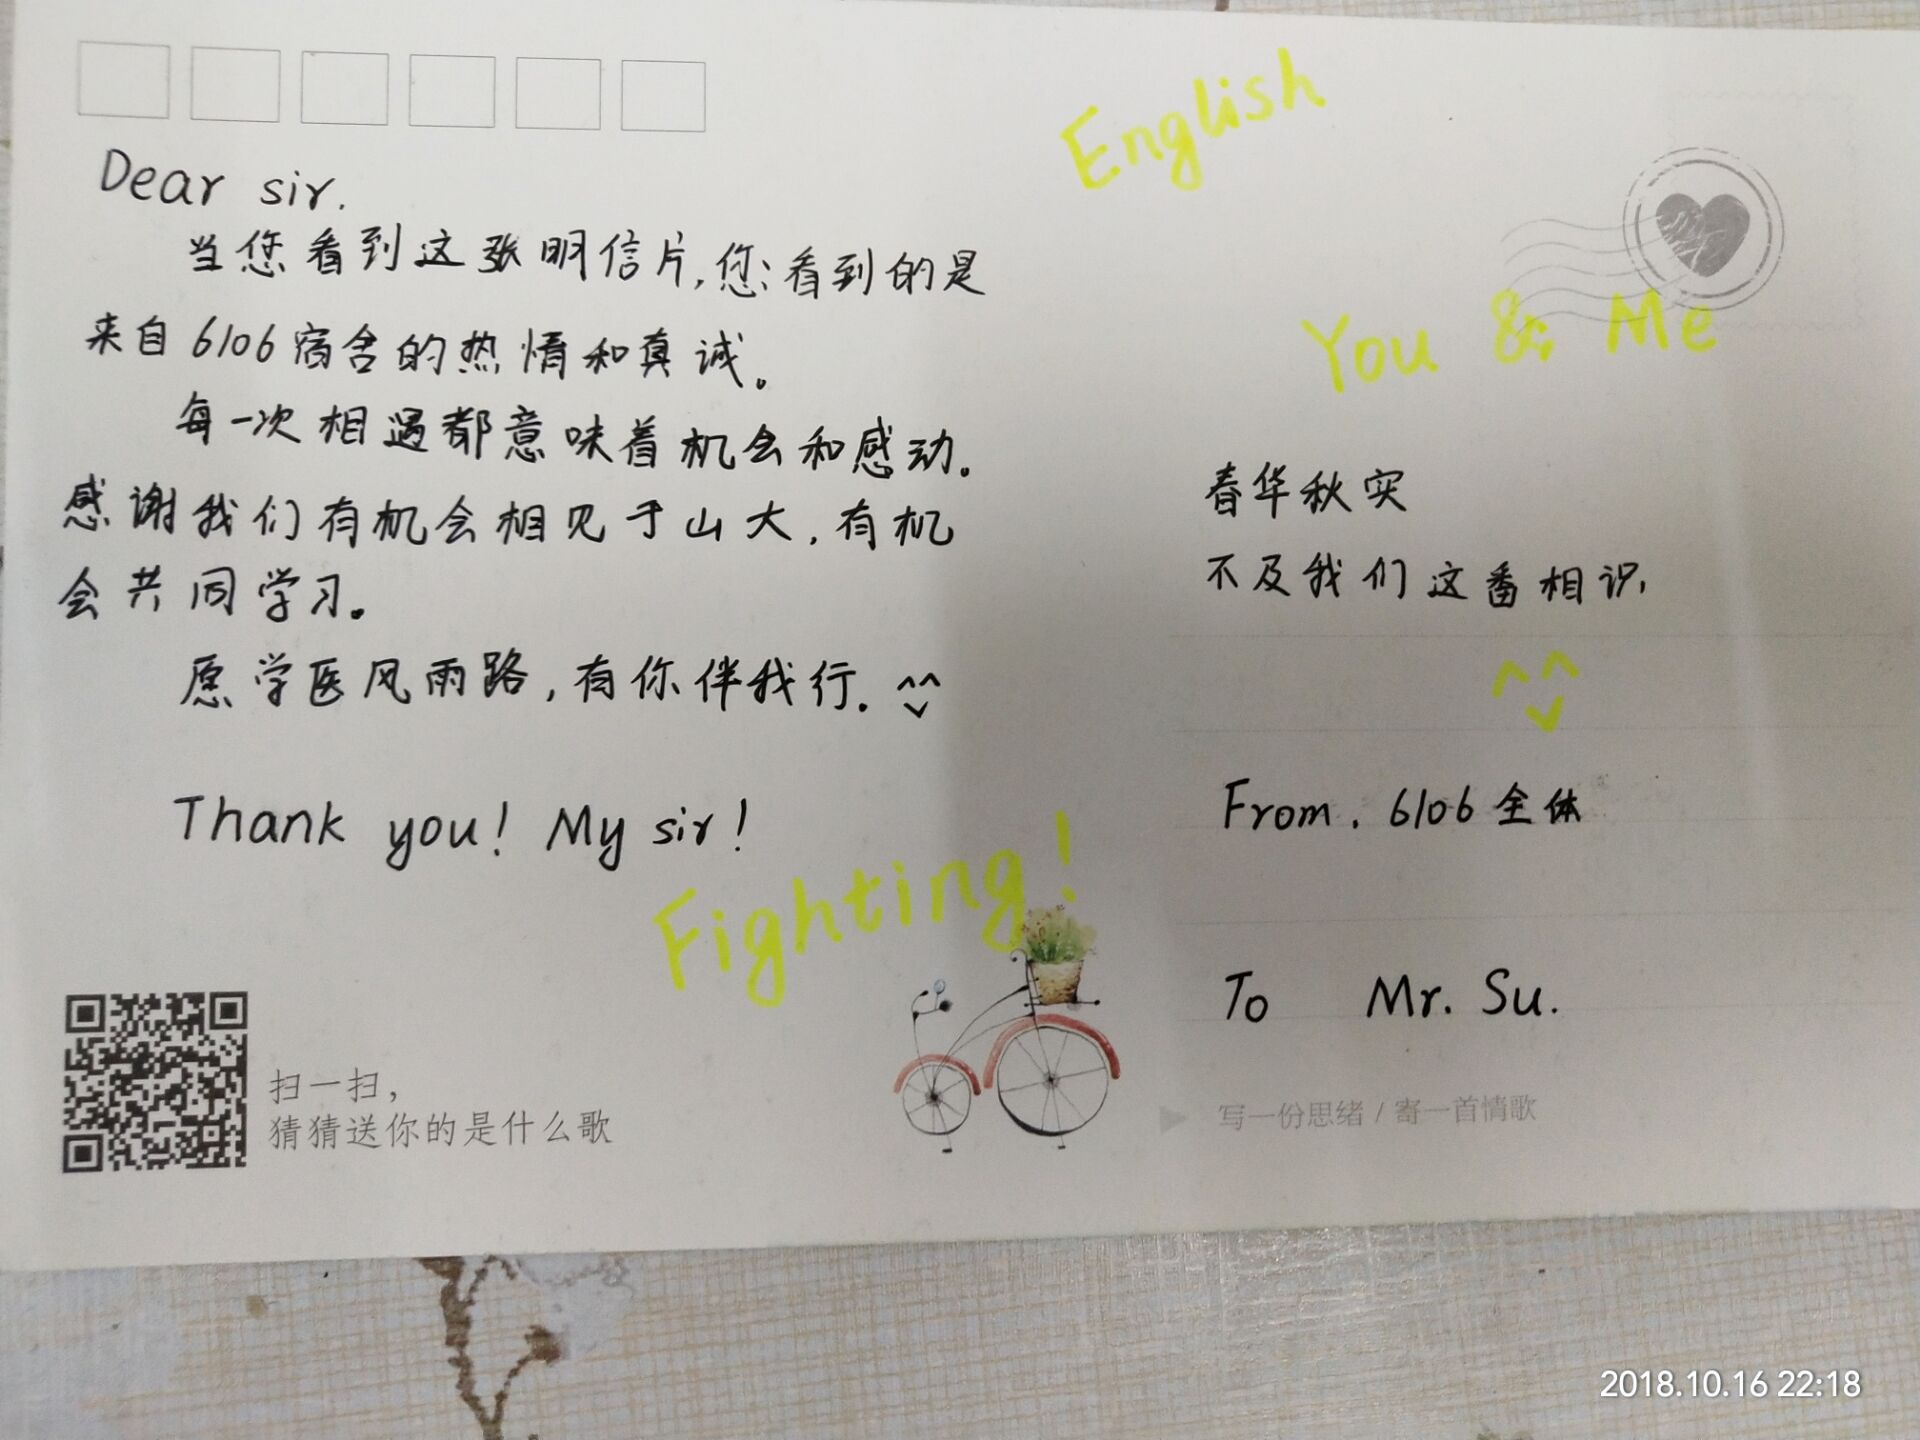 Dear sir.
当您看到这张明信片,您:看到的是
来自6106宿舍的热情和真诚。
每一次相遇都意味着机会和感动。
感谢我们有机会相见于山大,有机
会共同学习。
愿学医风雨路,有你伴我行. ^^
Thank you! My sir!
Fighting!
扫一扫,
猜猜送你的是什么歌
English
You & Me
春华秋实
不及我们这番相识,
From. 6106全体
To Mr. Su.
写一份思绪 / 寄一首情歌
2018.10.16 22:18